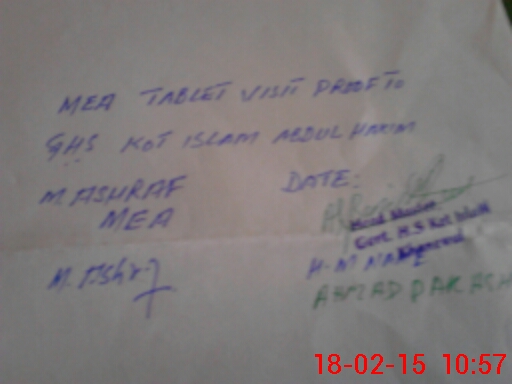 MEA TABLET VISIT PROOF TO
GHS KOT ISLAM ABDUL HAKIM
M. ASHRAF
MEA
DATE:
Head Master
Govt. H.S Kot Islam
Khanewal
H-M NAME
AHMAD
18-02-15 10:57